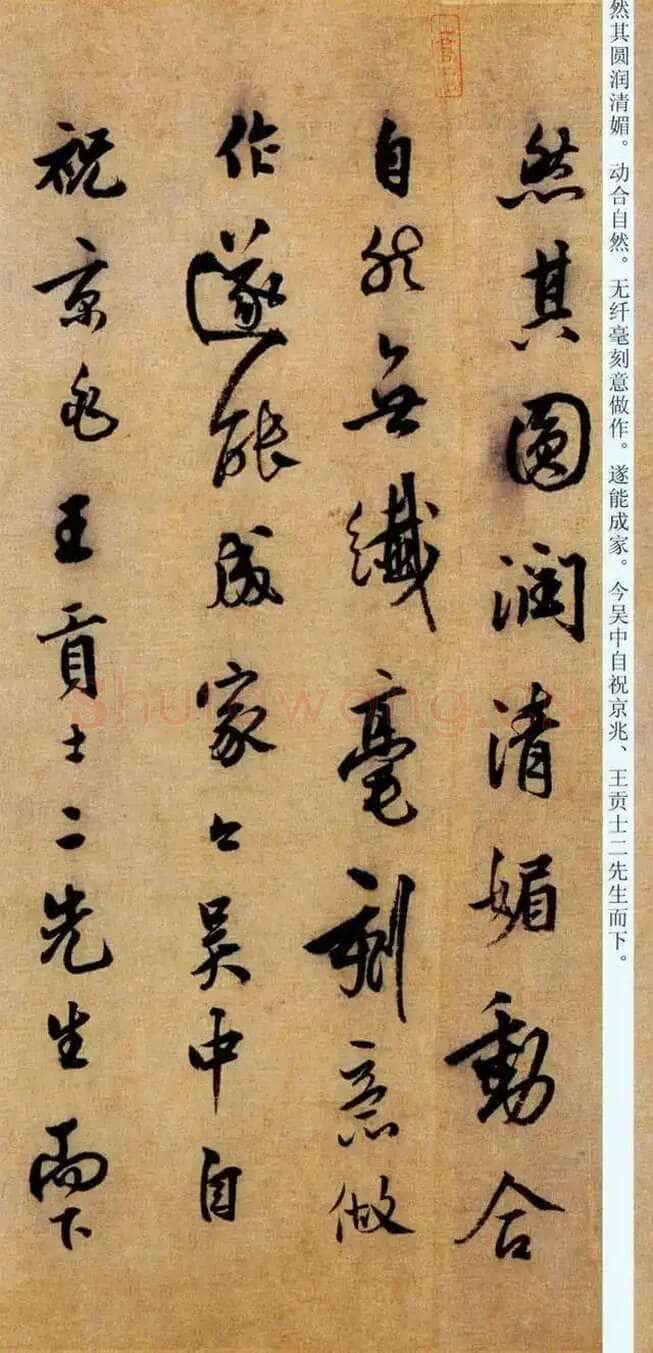 然其圆润清媚。动合自然。无纤毫刻意做作。遂能成家。今吴中自祝京兆、王贡士二先生而下。
然其圓潤清媚動合
自然無纖毫刻意做
作遂能成家今吴中自
祝京兆王貢士二先生而下